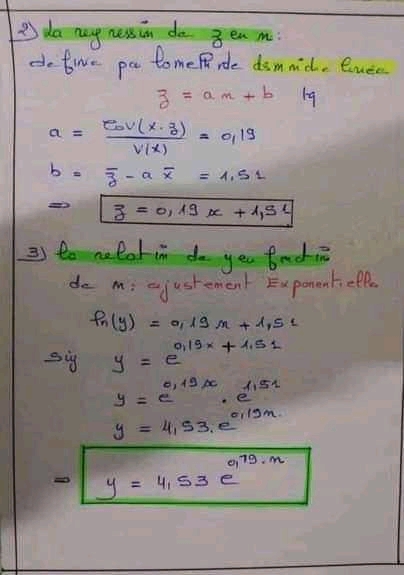 2) La regression de z en x :
define par la methode des moindre carrée
z = a x + b tq
a = Cov(x.z) / V(x) = 0,19
b = z̄ - a x̄ = 1,51
⇒ z = 0,19 x + 1,51
3) la relation de y en fonction
de x : ajustement Exponentielle
ln(y) = 0,19x + 1,51
sig y = e^0,19x + 1,51
y = e^0,19x . e^1,51
y = 4,53. e^0,19x.
⇒ y = 4,53 e^0,19.x